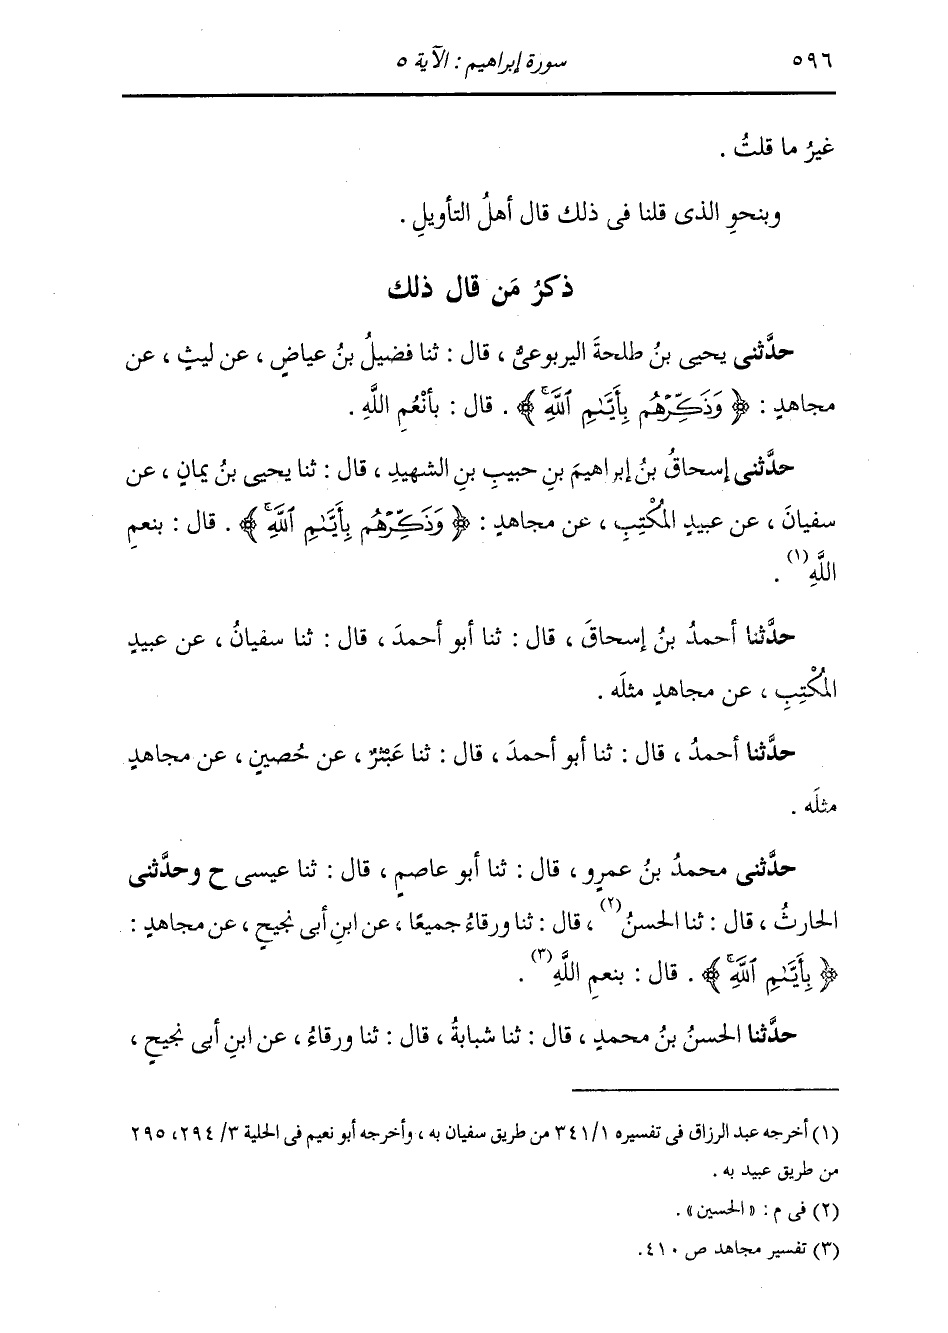 ٥٩٦ سورة إبراهيم : الآية ٥
غيرُ ما قلتُ .
وبنحوِ الذى قلنا فى ذلك قال أهلُ التأويلِ .
ذكرُ مَن قال ذلك
حدَّثنى يحيى بنُ طلحةَ اليربوعىُّ ، قال : ثنا فضيلُ بنُ عياضٍ ، عن ليثٍ ، عن
مجاهدٍ : ﴿ وَذَكِّرْهُم بِأَيَّىٰمِ ٱللَّهِۚ ﴾ . قال : بأنْعُمِ اللَّهِ .
حدَّثنى إسحاقُ بنُ إبراهيمَ بنِ حبيبِ بنِ الشهيدِ ، قال : ثنا يحيى بنُ يمانٍ ، عن
سفيانَ ، عن عبيدٍ المُكْتِبِ ، عن مجاهدٍ : ﴿ وَذَكِّرْهُم بِأَيَّىٰمِ ٱللَّهِۚ ﴾ . قال : بنعمِ
اللَّهِ (١) .
حدَّثنا أحمدُ بنُ إسحاقَ ، قال : ثنا أبو أحمدَ ، قال : ثنا سفيانُ ، عن عبيدٍ
المُكْتِبِ ، عن مجاهدٍ مثلَه .
حدَّثنا أحمدُ ، قال : ثنا أبو أحمدَ ، قال : ثنا عَبْثَرٌ ، عن حُصينٍ ، عن مجاهدٍ
مثلَه .
حدَّثنى محمدُ بنُ عمرٍو ، قال : ثنا أبو عاصمٍ ، قال : ثنا عيسى ح وحدَّثنى
الحارثُ ، قال : ثنا الحسنُ (٢) ، قال : ثنا ورقاءُ جميعًا ، عن ابنِ أبى نجيحٍ ، عن مجاهدٍ :
﴿ بِأَيَّىٰمِ ٱللَّهِۚ ﴾ . قال : بنعمِ اللَّهِ (٣) .
حدَّثنا الحسنُ بنُ محمدٍ ، قال : ثنا شبابةُ ، قال : ثنا ورقاءُ ، عن ابنِ أبى نجيحٍ ،
(١) أخرجه عبد الرزاق فى تفسيره ٣٤١/١ من طريق سفيان به ، وأخرجه أبو نعيم فى الحلية ٣/ ٢٩٤، ٢٩٥
من طريق عبيد به .
(٢) فى م : « الحسين » .
(٣) تفسير مجاهد ص ٤١٠.